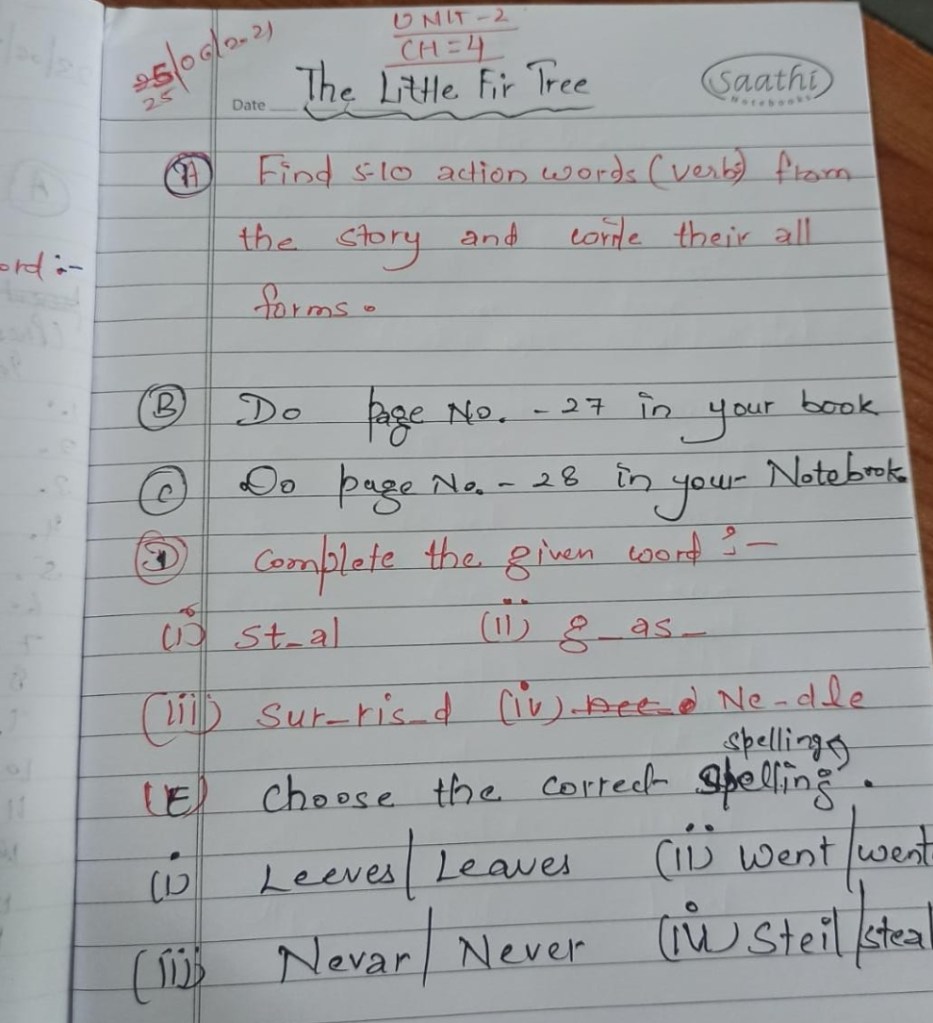 UNIT-2
CH=4
The Little Fir Tree
Saathi
Notebooks
Date
(A) Find 5-10 action words (verbs) from
the story and write their all
forms.
ord :-
(B) Do Page No. - 27 in your book
(C) Do page No. - 28 in your Notebook.
(D) Complete the given word :-
(i) st_al (ii) g_as_
(iii) Sur_ris_d (iv) Ne_dle
spelling
(E) Choose the correct spelling.
(i) Leeves/Leaves (ii) Went/went
(iii) Nevar/Never (iv) Steil/steal